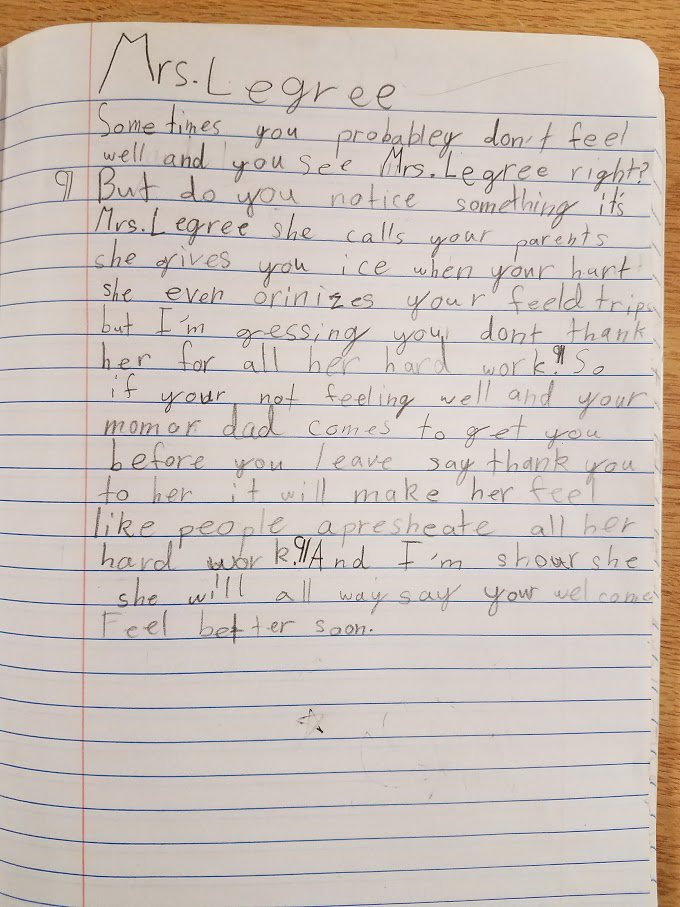 Mrs. Legree
Sometimes you probabley don't feel
well and you see Mrs. Legree right?
¶ But do you notice something it's
Mrs. Legree she calls your parents
she gives you ice when your hurt
she even orinizes your feeld trips
but I'm gessing you dont thank
her for all her hard work. ¶ So
if your not feeling well and your
mom or dad comes to get you
before you leave say thank you
to her it will make her feel
like people apresheate all her
hard work. ¶ And I'm shour she
she will all way say your welcome
Feel better soon.